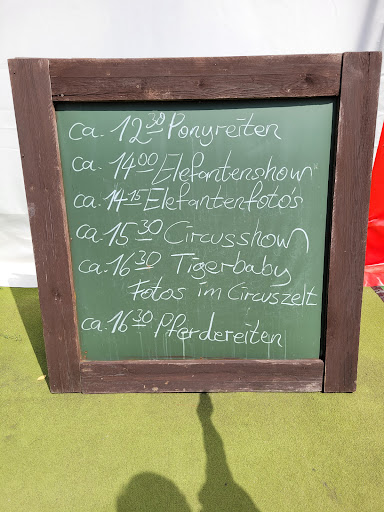 ca. 12 30 Ponyreiten
ca. 14 00 Elefantenshow
ca. 14 15 Elefantenfoto's
ca. 15 30 Circusshow
ca. 16 30 Tigerbaby
Fotos im Circuszelt
ca. 16 30 Pferdereiten